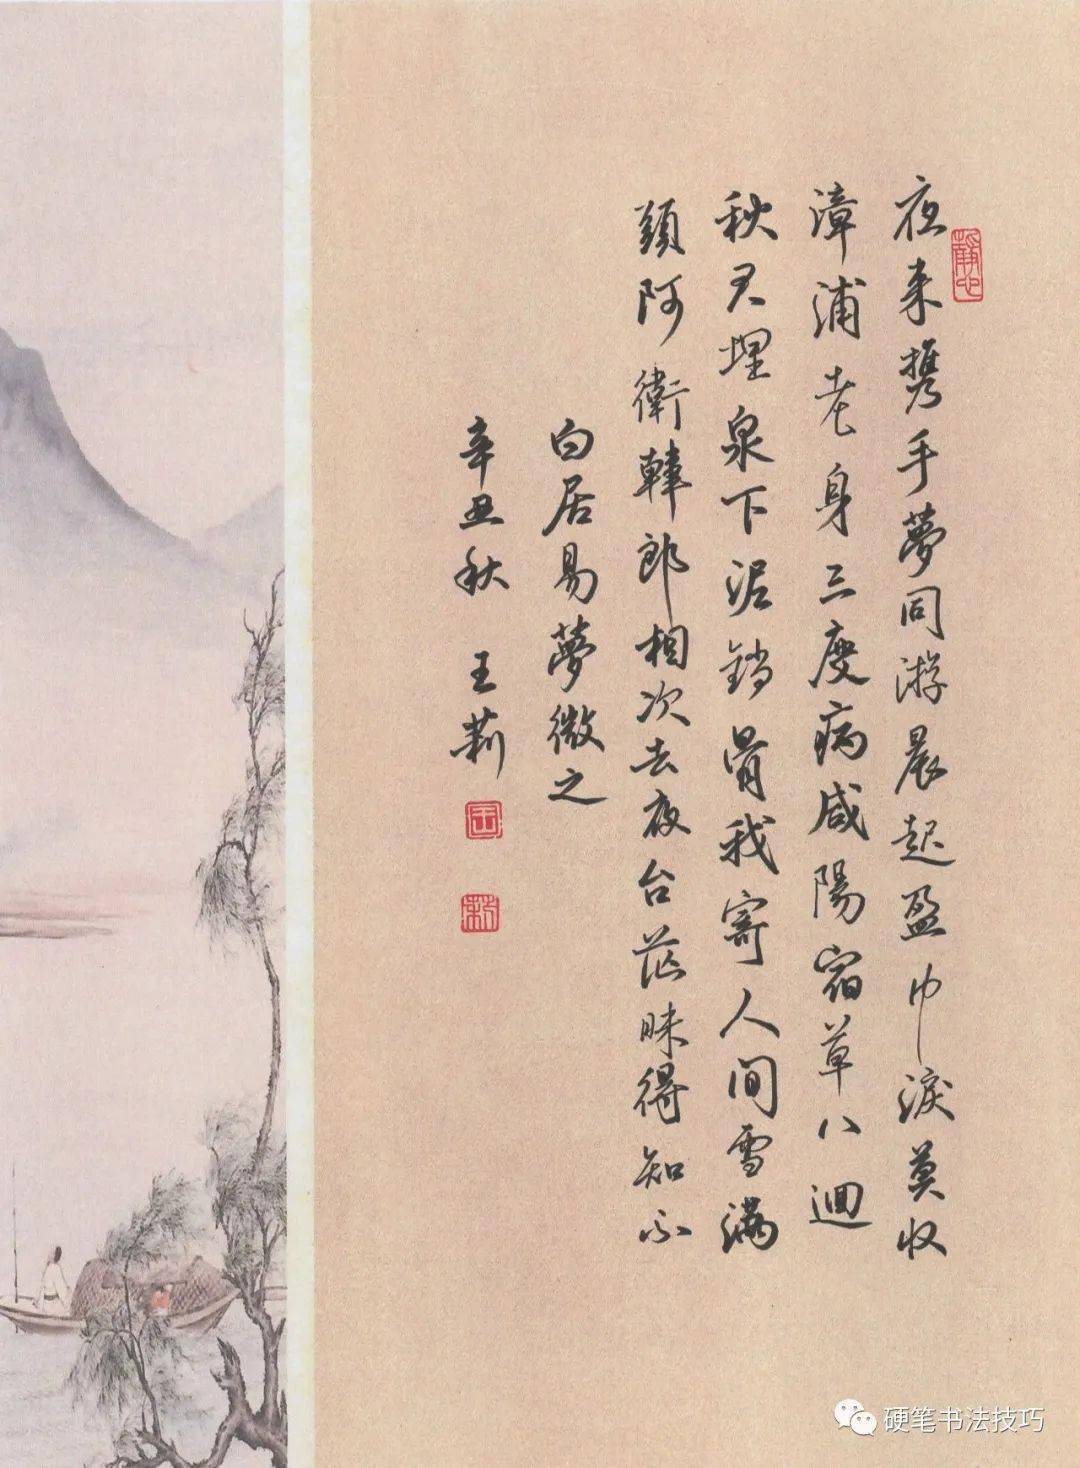 夜来携手夢同游晨起盈巾淚莫收
漳浦老身三度病咸陽宿草八迴
秋君埋泉下泥銷骨我寄人間雪满
頭阿衛韓郎相次去夜台茫昧得知不
白居易夢微之
辛丑秋 王莉
静心
王
莉
硬笔书法技巧